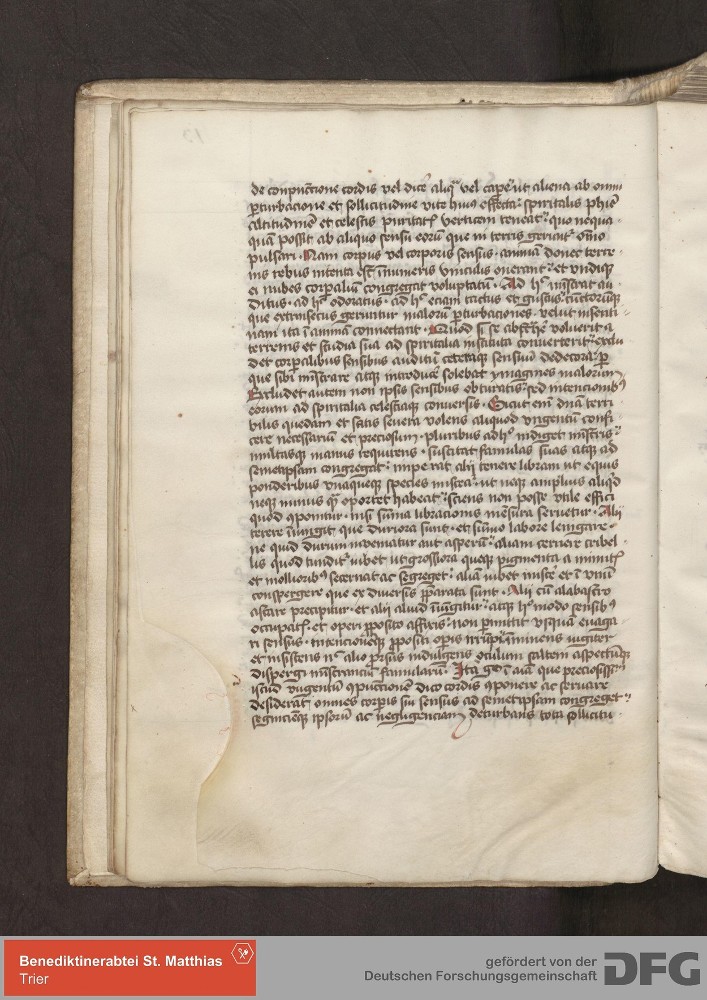 de conpunctione cordis vel dicere aliquid vel capere ut aliena ab omni
perturbacione et sollicitudine vite huius effecta spiritalis
altitudinem et celestis puritatis verticem teneat quo nequa
quam possit ab aliquo sensu eorum que in terris geruntur omnino
pulsari. Nam corpus vel corporis sensus animam donec terre
nis rebus intenta est innumeris vinculis onerant et undique
ei nubes corporalium congregant voluptatum. Ad hoc ministrat au
ditus ad hoc odoratus ad hoc eciam tactus et gustus cunctorumque
que extrinsecus geruntur malorum perturbaciones velut in senti
nam ita in animam connectant. Quod si se abstrahere voluerit a
terrenis et studia sua ad spiritalia instituta converterit exclu
det corporalibus sensibus auditum ceterorumque sensuum per
que sibi ministrare atque introducere solebat ymagines malorum
Excludet autem non ipsis sensibus obturatis sed intencionibus
eorum ad spiritalia celestiaque conversis. Sicut enim domina terri
bilis quedam et satis severa volens aliquod ungentum confi
cere necessarium et preciosum pluribus adhuc indiget ministris
multasque manus requirens suscitat famulas suas atque ad
semetipsam congregat imperat alii tenere libram ut equis
ponderibus unaqueque species misceatur ut neque amplius aliquid
neque minus quam oportet habeat sciens non posse utile effici
quod componitur nisi summa libracionis mensura servetur. Alii
terere iniungit que duriora sunt et summo labore lenigare
ne quid durum inveniatur aut asperum aliam cernere cribel
lis quod tunditur iubet ut grossiora queque pigmenta a minutis
et mollioribus secernat ac segreget aliam iubet miscere et in unum
conspergere que ex diversis preparata sunt. Alii cum alabastro
astare precipitur et alii aliud iniungitur atque hoc modo sensibus
occupatis et operi proposito affixis non permittit usquam evaga
ri sensus intencionesque propositi operis inrumpi imminens iugiter
et insistens nec alio prorsus indulgens oculum saltem aspectumque
dispergi ministrancium famularum. Ita quod in anima que preciosissimum
istud ungentum conpunctionem dico cordis conponere ac servare
desiderat omnes corporis sui sensus ad semetipsam congreget
segniciemque ipsorum ac negligenciam deturbans tota sollicitu
Benediktinerabtei St. Matthias
Trier
gefördert von der
Deutschen Forschungsgemeinschaft
DFG